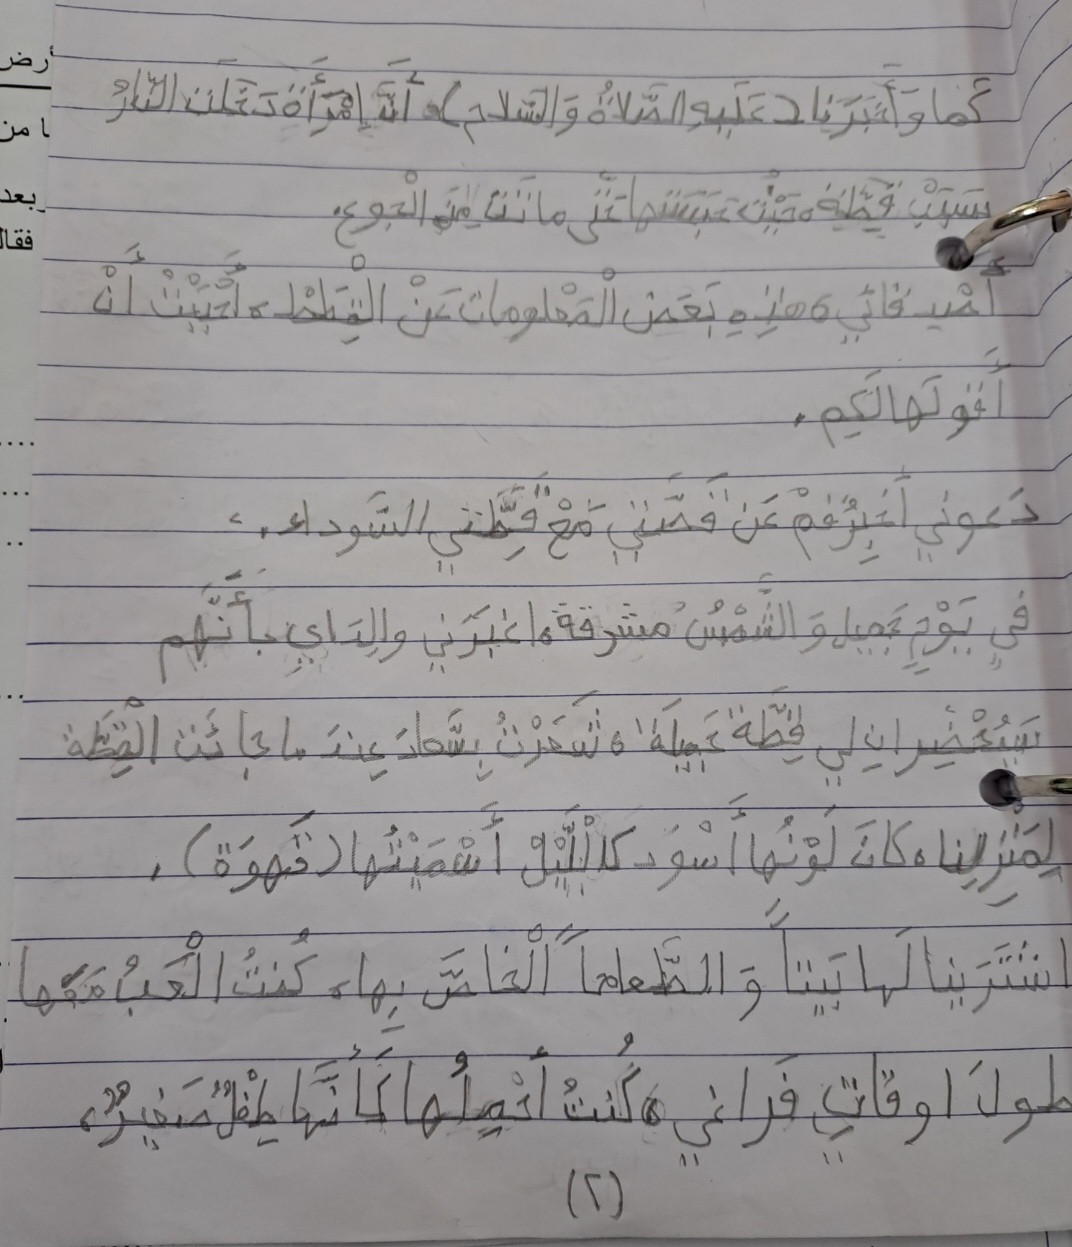 كَما وَأَخبَرَنا (عَلَيهِ الصَّلاةُ وَالسَّلام)، أَنَّ إمْرَأَة دَخَلَت النّارُ
بَسَبَبْ قِطَّة، حَيْثُ حَبَسَتها حَتّى ماتَت مِنَ الْجوع.
أَصْدِقائي، هذِهِ بَعضْ الْمَعْلومات عَنْ الْقِطَط، أَحْبَبْتْ أَنْ
أَقولَها لَكِم.
دَعوني أَخْبِرُكُمْ عَن قِصَّتِي مَعْ قِطَّتي السَّوداء،
في يَوْمٍ جَميل وَ الشَّمْسُ مُشرِقة، اخبَرَني والِدَايِ بأَنَّهُم
سَيُحْضِران لي قِطَّة جَميلَة، شَعَرْتُ بِسَّعادَ عِندَ ما جائَت القِطَّة
لِمَنْزِلِنا، كانَ لَوْنُها أَسْوَد كاللَّيْلِ أَسْمَيْتُها (قَهوَة).
اشتَرَينا لَها بَيتاً وَ الطَّعاماً الْخاصَّ بِها، كُنتُ الْعَبُ مَعَها
طولَ اوقاتِ فَراغي، كُنتُ أَحْمِلُها كَأَنَّها طِفْلٌ صَغيرٌ،
(٢)
أرض
ا من
بعد
فقا